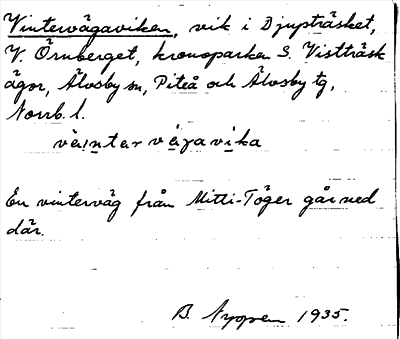 Vintervägaviken, vik i Djupträsket,
V. Örnberget, kronoparken S. Vistträsk
ägor, Älvsby sn, Piteå och Älvsby tg,
Norrb. l.
väintervägavika
En vinterväg från Mitti-Töger går ned
där.
B. Nyppen 1935.